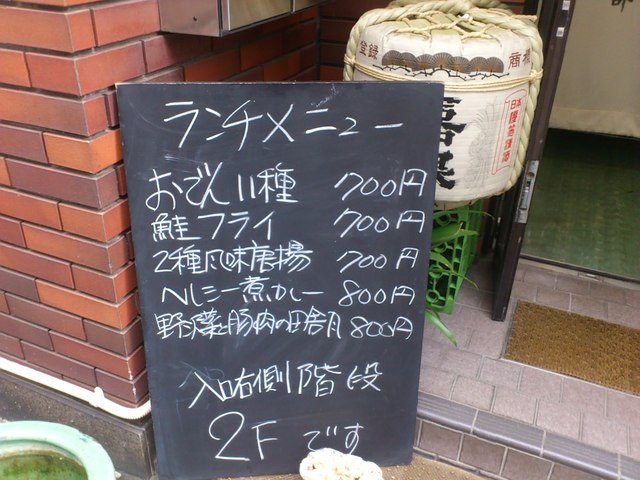 ランチメニュー
おでん11種 700円
鮭フライ 700円
2種風味唐揚 700円
ヘルシー煮カレー 800円
野沢菜と豚肉の田舎 800円
入口右側階段
2Fです
登録 商標
日本盛清酒